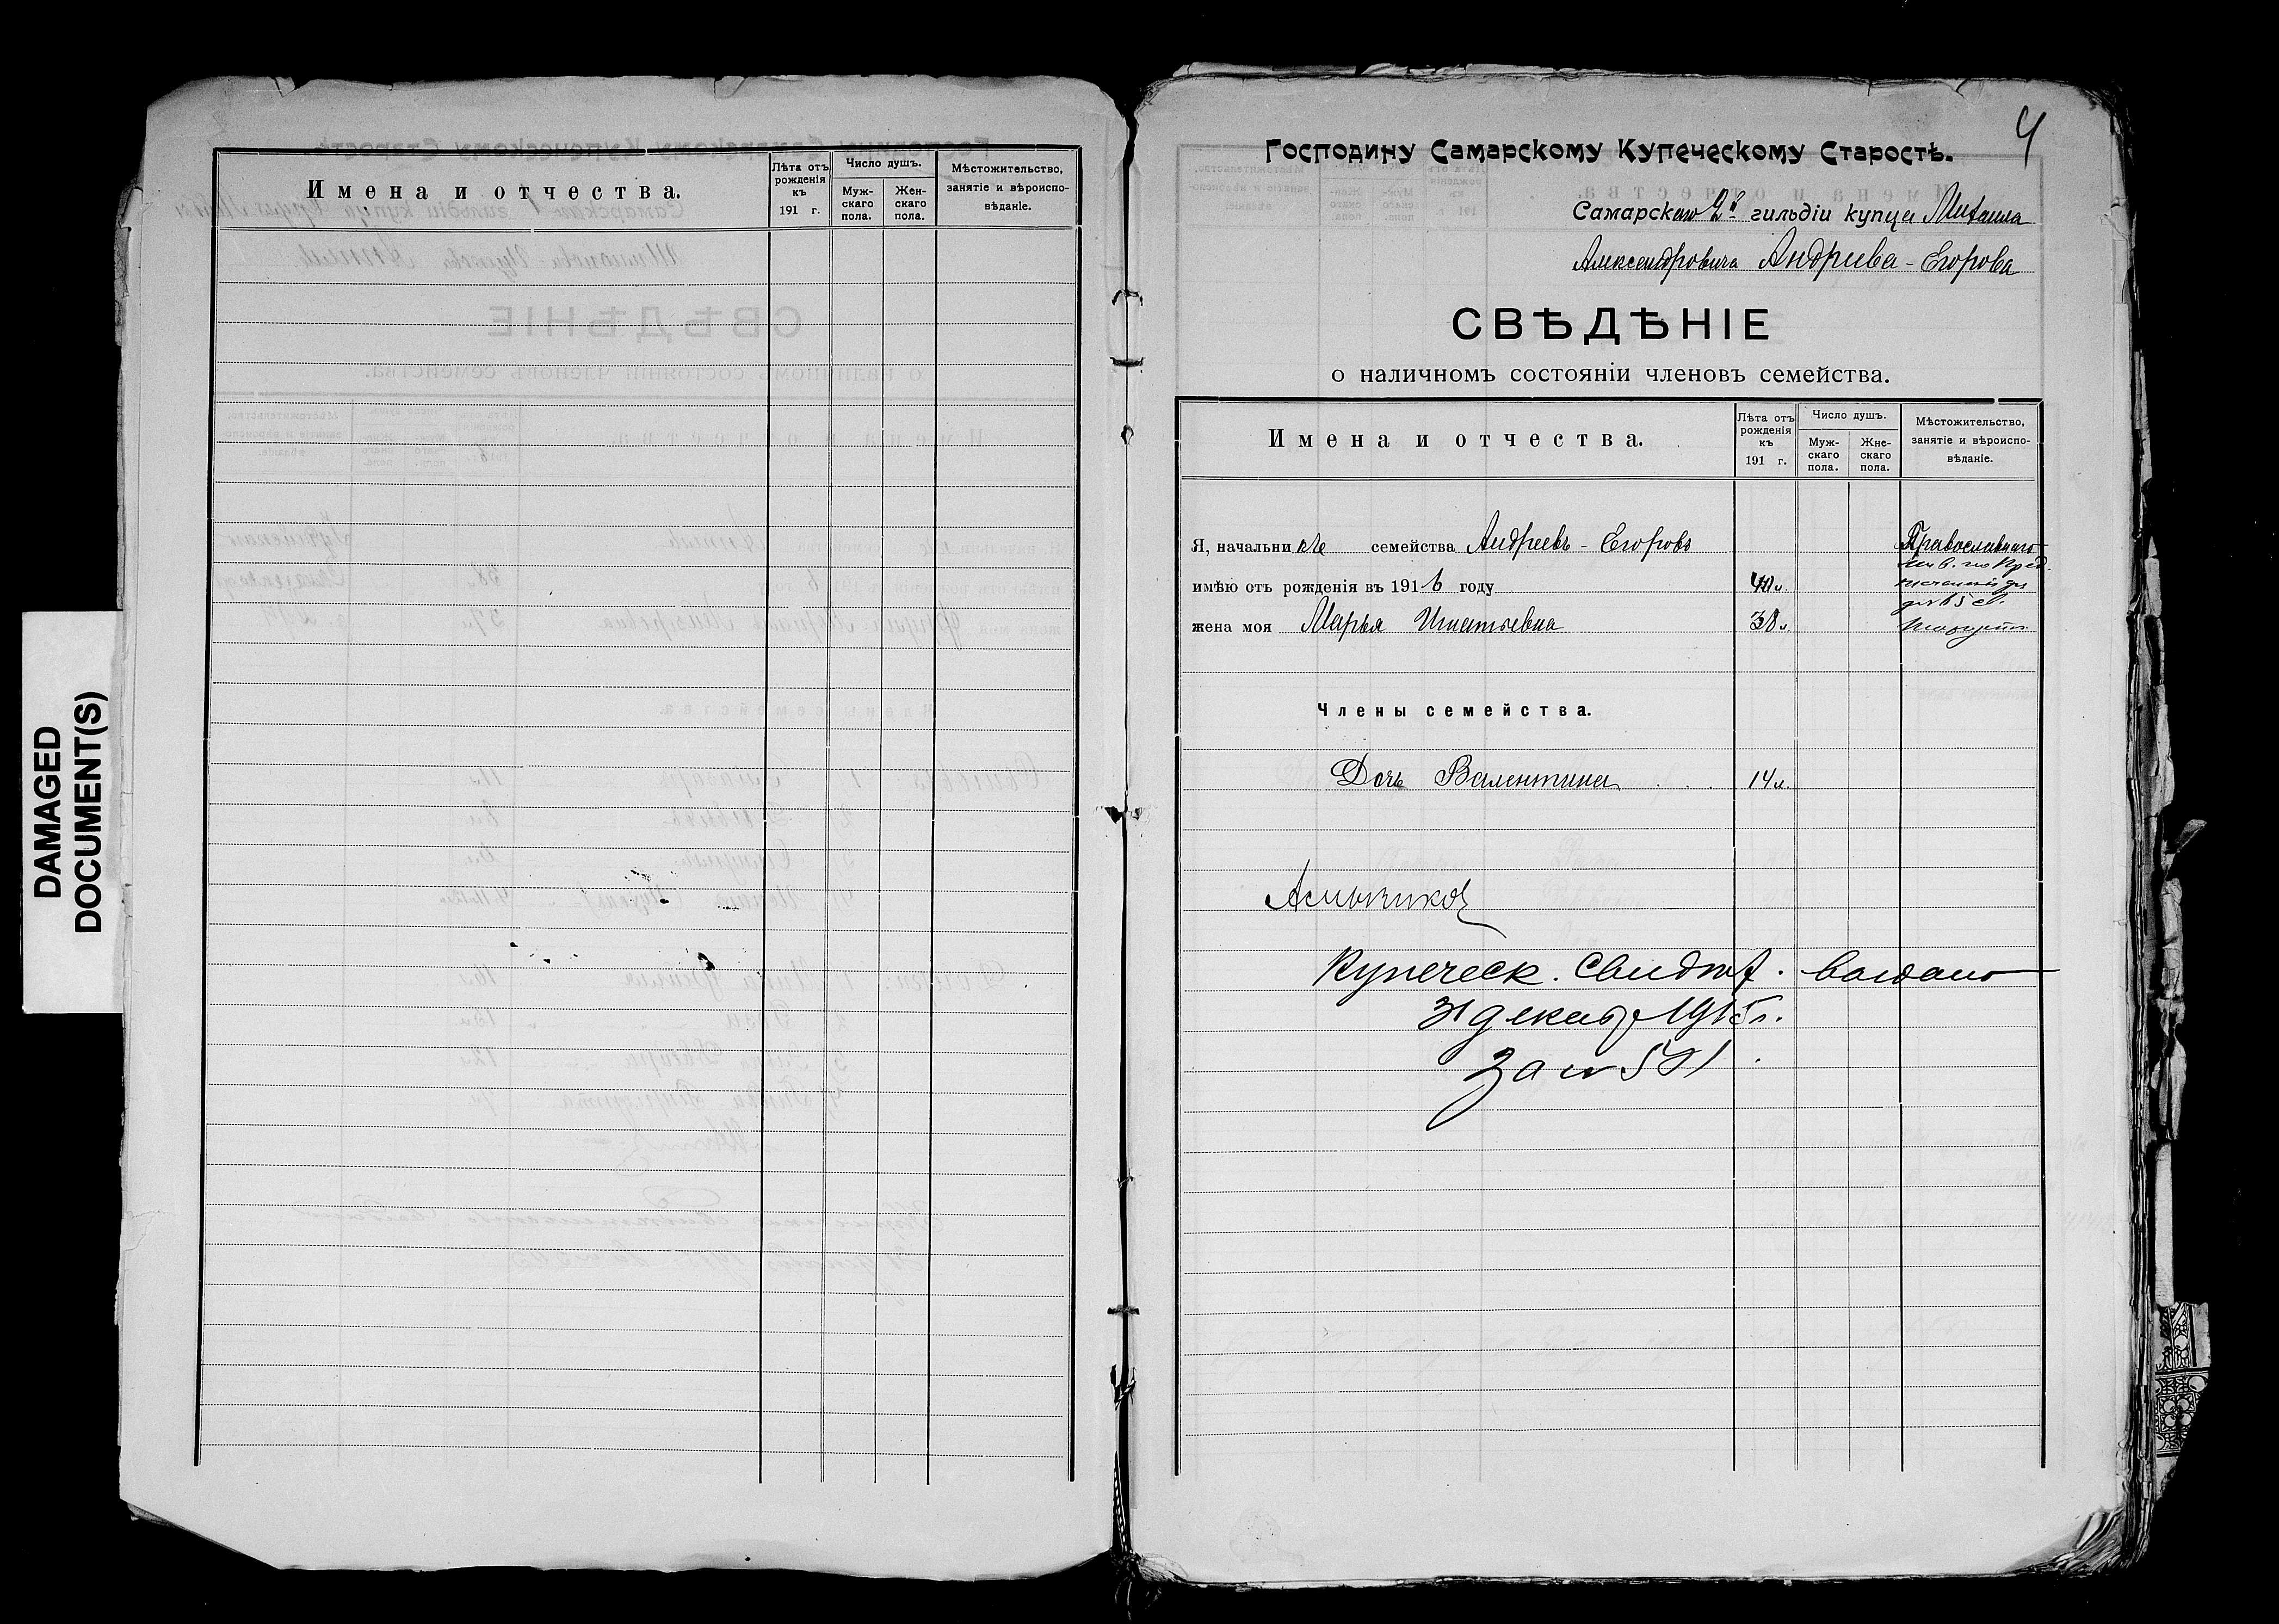 DAMAGED
DOCUMENT(S)
Имена и отчества.
Лѣта отъ рожденія къ 191 г.
Число душъ.
Муж-
скаго
пола.
Жен-
скаго
пола.
Мѣстожительство,
занятіе и вѣроиспо-
вѣданіе.
4
Господину Самарскому Купеческому Старостѣ.
Самарскаго 2й гильдіи купца Михаила
Александровича Андреева-Егорова
СВѢДѢНІЕ
о наличномъ состояніи членовъ семейства.
Имена и отчества.
Лѣта отъ
рожденія
къ
191 г.
Число душъ.
Муж-
скаго
пола.
Жне-
скаго
пола.
Мѣстожительство,
занятіе и вѣроиспо-
вѣданіе.
Я, начальни семейства Андреевъ-Егоровъ
Православнаго
имѣю отъ рожденія въ 1916 году
жена моя Марья Игнатьевна 38 л.
Члены семейства.
Дочь Валентина 14 л.
Купеческ. выдано
31 декаб 1915 г.
За №